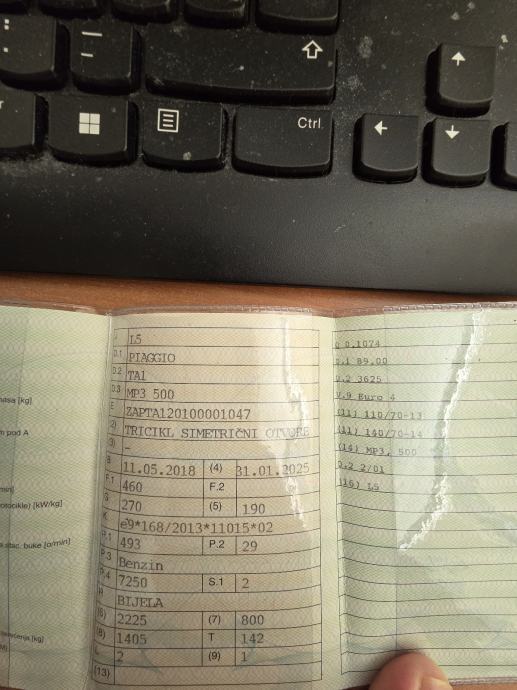 Ctrl
nasa [kg]
m pod A
min]
otocikle) [kW/kg]
a stac. buke [o/min]
[kg]
M)
J L5
D.1 PIAGGIO
D.2 TA1
D.3 MP3 500
E ZAPTA120100001047
2) TRICIKL SIMETRIČNI OTVORE
(3) -
B 11.05.2018 (4) 31.01.2025
F.1 460 F.2
G 270 (5) 190
K e9*168/2013*11015*02
P.1 493 P.2 29
P.3 Benzin
P.4 7250 S.1 2
R BIJELA
(6) 2225 (7) 800
(8) 1405 T 142
L 2 (9) 1
(13)
Q 0.1074
U.1 89.00
U.2 3625
V.9 Euro 4
(11) 110/70-13
(11) 140/70-14
(14) MP3, 500
D.2 2/01
(16) L5